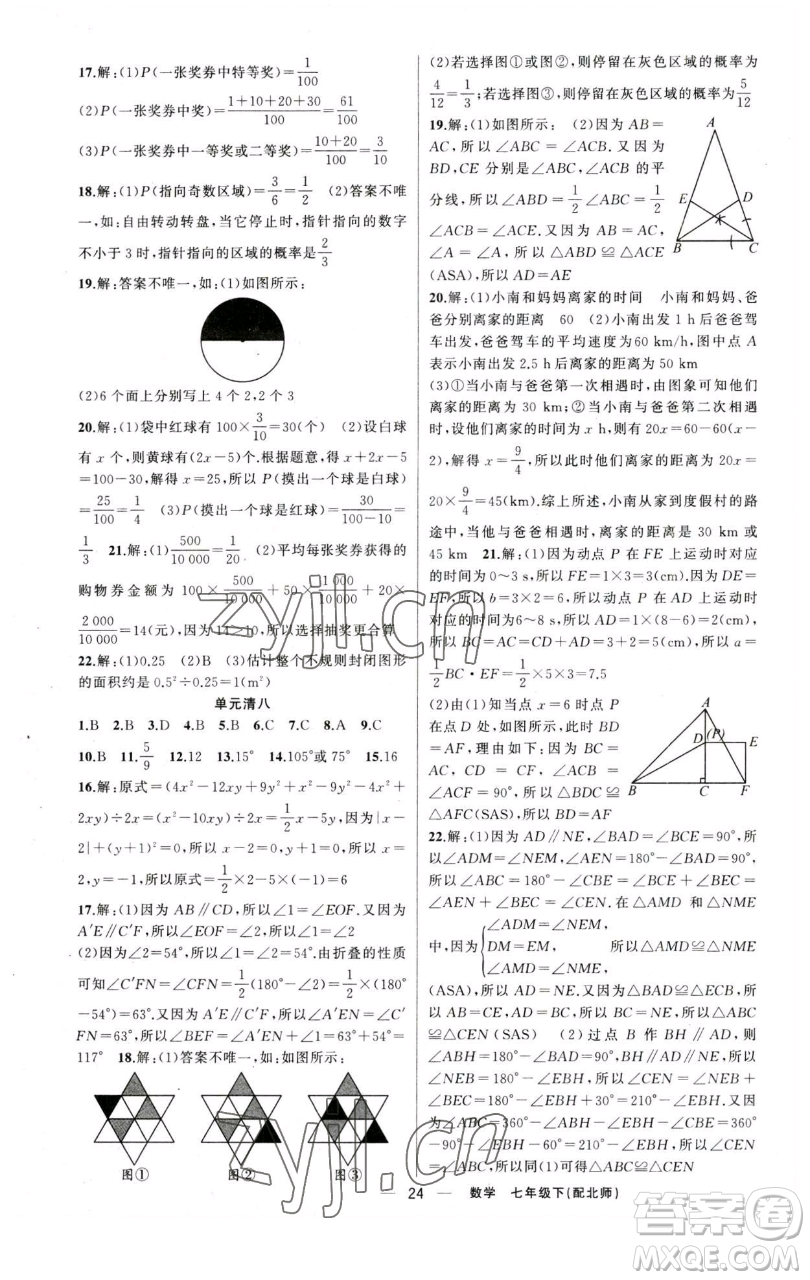 17.解:(1)P(一张奖券中特等奖)=1/100
(2)P(一张奖券中奖)=(1+10+20+30)/100=61/100
(3)P(一张奖券中一等奖或二等奖)=(10+20)/100=3/10
18.解:(1)P(指向奇数区域)=3/6=1/2 (2)答案不唯
一,如:自由转动转盘,当它停止时,指针指向的数字
不小于3时,指针指向的区域的概率是2/3
19.解:答案不唯一,如:(1)如图所示:
(2)6个面上分别写上4个2,2个3
20.解:(1)袋中红球有100×3/10=30(个) (2)设白球
有x个,则黄球有(2x-5)个.根据题意,得x+2x-5
=100-30,解得x=25,所以P(摸出一个球是白球)
=25/100=1/4 (3)P(摸出一个球是红球)=30/(100-10)=
1/3 21.解:(1)500/10 000=1/20 (2)平均每张奖券获得的
购物券金额为100×500/10 000+50×1 000/10 000+20×
2 000/10 000=14(元),因为14>10,所以选择抽奖更合算
22.解:(1)0.25 (2)B (3)估计整个不规则封闭图形
的面积约是0.5²÷0.25=1(m²)
单元清八
1.B 2.B 3.D 4.B 5.C 6.B 7.C 8.A 9.C
10.B 11.5/9 12.12 13.15° 14.105°或75° 15.16
16.解:原式=(4x²-12xy+9y²+x²-9y²-4x²+
2xy)÷2x=(x²-10xy)÷2x=1/2x-5y.因为|x-
2|+(y+1)²=0,所以x-2=0,y+1=0,所以x=
2,y=-1,所以原式=1/2×2-5×(-1)=6
17.解:(1)因为AB∥CD,所以∠1=∠EOF.又因为
A′E∥C′F,所以∠2=∠EOF,所以∠1=∠2
(2)因为∠1=∠2,所以∠2=54°.由折叠的性质
可知∠C′FN=∠CFN=1/2(180°-∠2)=1/2×(180°
-54°)=63°.又因为A′E∥C′F,所以∠A′EN=∠C
′FN=63°,所以∠BEF=∠AEF=∠1+∠A′EN=
117° 18.解:(1)答案不唯一,如:如图所示:
图① 图② 图③
(2)若选择图①或图②,则停留在灰色区域的概率为
4/12=1/3;若选择图③,则停留在灰色区域的概率为5/12
19.解:(1)如图所示: (2)因为AB=
AC,所以∠ABC=∠ACB.又因为
BD,CE分别是∠ABC,∠ACB的平
分线,所以∠ABD=1/2∠ABC=1/2
∠ACB=∠ACE.又因为AB=AC,
∠A=∠A,所以△ABD≌△ACE
(ASA),所以AD=AE
A
E D
B C
20.解:(1)小南和妈妈离家的时间 小南和妈妈、爸
爸分别离家的距离 60 (2)小南出发1 h后爸爸驾
车出发,爸爸驾车的平均速度为60 km/h,图中点A
表示小南出发2.5 h后离家的距离为50 km
(3)①当小南与爸爸第一次相遇时,由图象可知他们
离家的距离为30 km;②当小南与爸爸第二次相遇
时,设他们离家的时间为x h,则有20x=60(x-
2),解得x=9/4,所以此时他们离家的距离为20x=
20×9/4=45(km).综上所述,小南从家到度假村的路
途中,当他与爸爸相遇时,离家的距离是30 km或
45 km 21.解:(1)因为动点P在FE上运动时对应
的时间为0~3 s,所以FE=1×3=3(cm),所以DE=
EF,所以BC=3×2=6,所以动点P在DA上运动时对
应的时间为6~8 s,所以AD=1×(8-6)=2(cm).
所以CD=FE=3 cm,所以AC=AD+CD=3+2=5(cm),所以a=
1/2BC·EF=1/2×5×3=7.5
(2)由(1)知当点x=6时点P
在点D处,如图所示,此时BD
=AF,理由如下:因为BC=
AC,∠BCD=∠ACF=90°,所以△BDC≌
△AFC(SAS),所以BD=AF
A
D (P) E
B C F
22.解:(1)因为AD∥NE,∠BAD=∠BCE=90°,所
以∠ADM=∠NEM,∠AEN=180°-∠BAD=90°,
所以∠ABC=180°-∠CBE=∠BEC+∠BCE=
∠AEN+∠BEC=∠CEN.在△AMD和△NME
中,因为{∠ADM=∠NEM, DM=EM, ∠AMD=∠NME 所以△AMD≌△NME
(ASA),所以AD=NE.因为△BAD≌△ECB,所
以AB=CE,AD=CB,所以CB=NE,所以△ABC
≌△CEN(SAS) (2)过点B作BH∥AD,则
∠ABH=180°-∠BAD=90°,BH∥AD∥NE,所以
∠NEB=180°-∠EBH,所以∠CEN=∠NEB+
∠BEC=180°-∠EBH+30°=210°-∠EBH.又因为
∠ABC=360°-∠ABH-∠EBH-∠CBE=360°
-90°-∠EBH-60°=210°-∠EBH,所以∠ABC=
∠CEN,所以同(1)可得△ABC≌△CEN
24 — 数学 七年级下(配北师)
zyjl.cn
zyjl.cn
答案卷
MXQE.COM